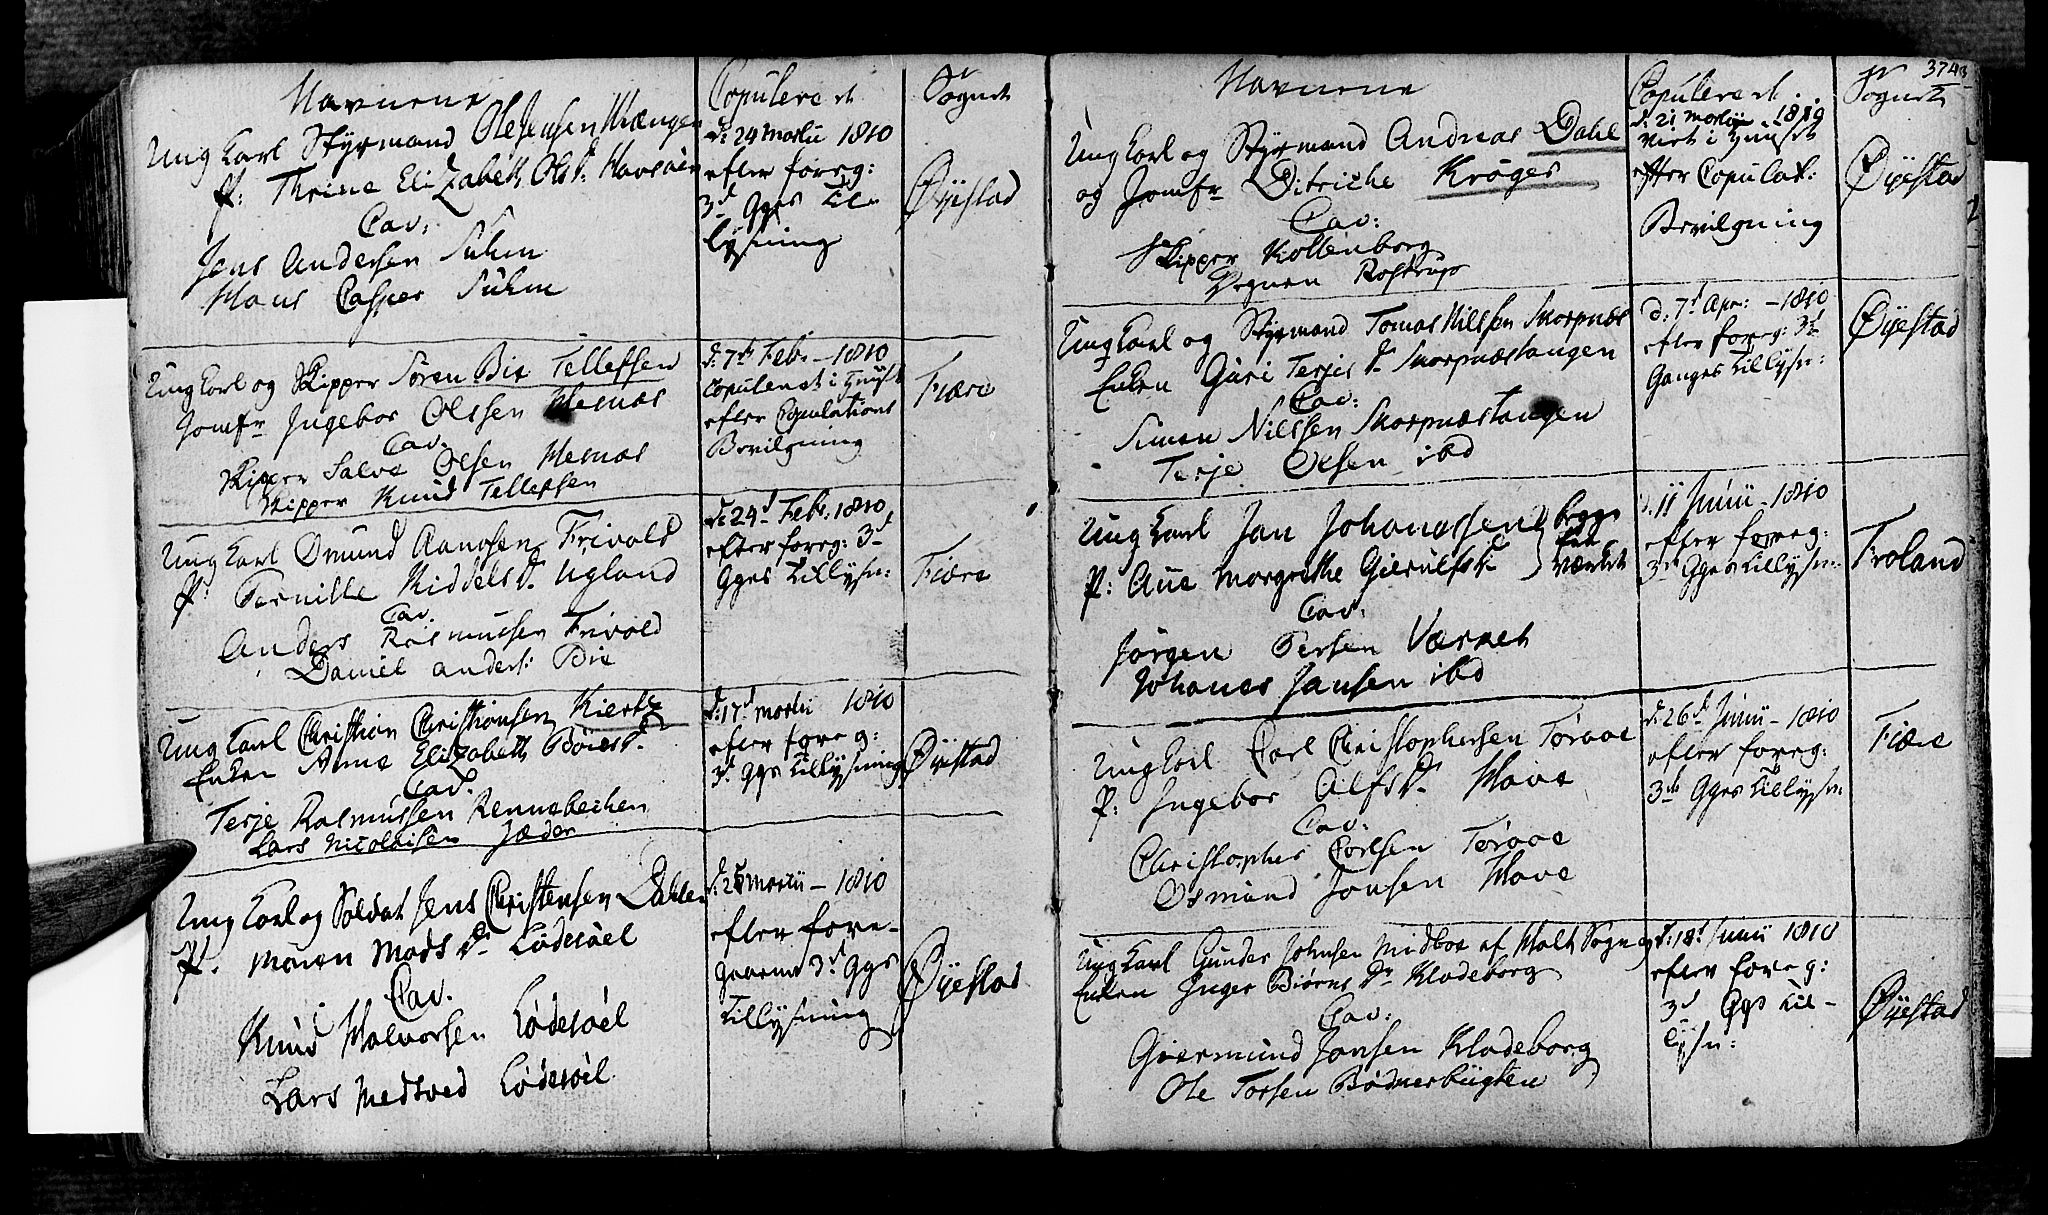 Navnene
Copuleret
Sognet
Ung Karl Styrmand Ole Jensen
P: Thrine Elizabeth Ols D. Havsøen
Cav:
Jens Andersen Suhm
Hans Casper Suhm
d: 24 Martii 1810
efter foreg:
3d Gges Til-
lysning
Øyestad
Ung Karl og Skipper Søren Bie Tellefsen
Jomfr Ingebor Olssen Hesnæs
Cav.
Skipper Salve Olsen Hesnæs
Skipper Knud Tellefsen
d: 7de Febr – 1810
Copuleret i Huuset
efter Copulations
Bevilgning
Fiære
Ung Karl Omund Aanonsen Frivold
P: Pernille Kiddels D. Ugland
Cav.
Anders Rasmussen Frivold
Daniel Anders: Bie
d: 24d Febr. 1810
efter foreg: 3d
Gges Tillysn:
Fiære
Ung Karl Christion Christionsen
Enken Anne Elizabeth
Cav.
Terje Rasmussen Rennebechen
Lars Nicolaisen Jæder
d: 17d Martii 1810
efter foreg:
3d Gges Tillysning
Øyestad
Ung Karl og Soldat Jens Christensen Dahlen
P. Maren Mads D. Lødesøel
Cav.
Knud Halvorsen Lødesøel
Lars Medsved Lødesøel
Martii – 1810
efter fore-
gaaende 3d Ggs
Tillysning
Øyestad
374
Navnene
Copuleret
Sognet
Ung Karl og Styrmand Andreas Dahl
og Jomfr Ditriche Krøger
Cav:
Skipper Kollenborg
Degnen Rostrup
d. 21 Martii 1810
viet i Huuset
efter Copulat:
Bevilgning
Øyestad
Ung Karl og Styrmand Tomas Nilssen Skorpnæs
Enken Guri Terjes D. Skorpnæstangen
Cav:
Simen Nilssen Skorpnæstangen
Terje Olsen ibd
d: 7d Apr: – 1810
efter foreg: 3d
Ganges Tillysn:
Øyestad
Ung Karl Jan Johanessen } begge
P: Ane Margrethe Gierulfs D. } værket
Cav:
Jørgen Persen Værket
Johanes Jansen ibd
d: 11 Junii – 1810
efter foreg:
3d Gges Tillysn:
Froland
Ung Karl Carl Christophersen Toraae
P: Ingebor Alfs D. Have
Cav:
Christopher Carlsen Toraae
Osmund Jonsen Have
d: 26d Junii – 1810
efter foreg:
3de Gges Tillysn
Fiære
Ung Karl Gunder Johnsen Midboe af Holt Sogn
Enken Inger Biørns D. Kladeborg
Cav:
Giermund Jansen Kladeborg
Ole Torsen Bødnerbugten
d: 18d Junii 1810
efter foreg:
3d Ggs Til-
lysn:
Øyestad